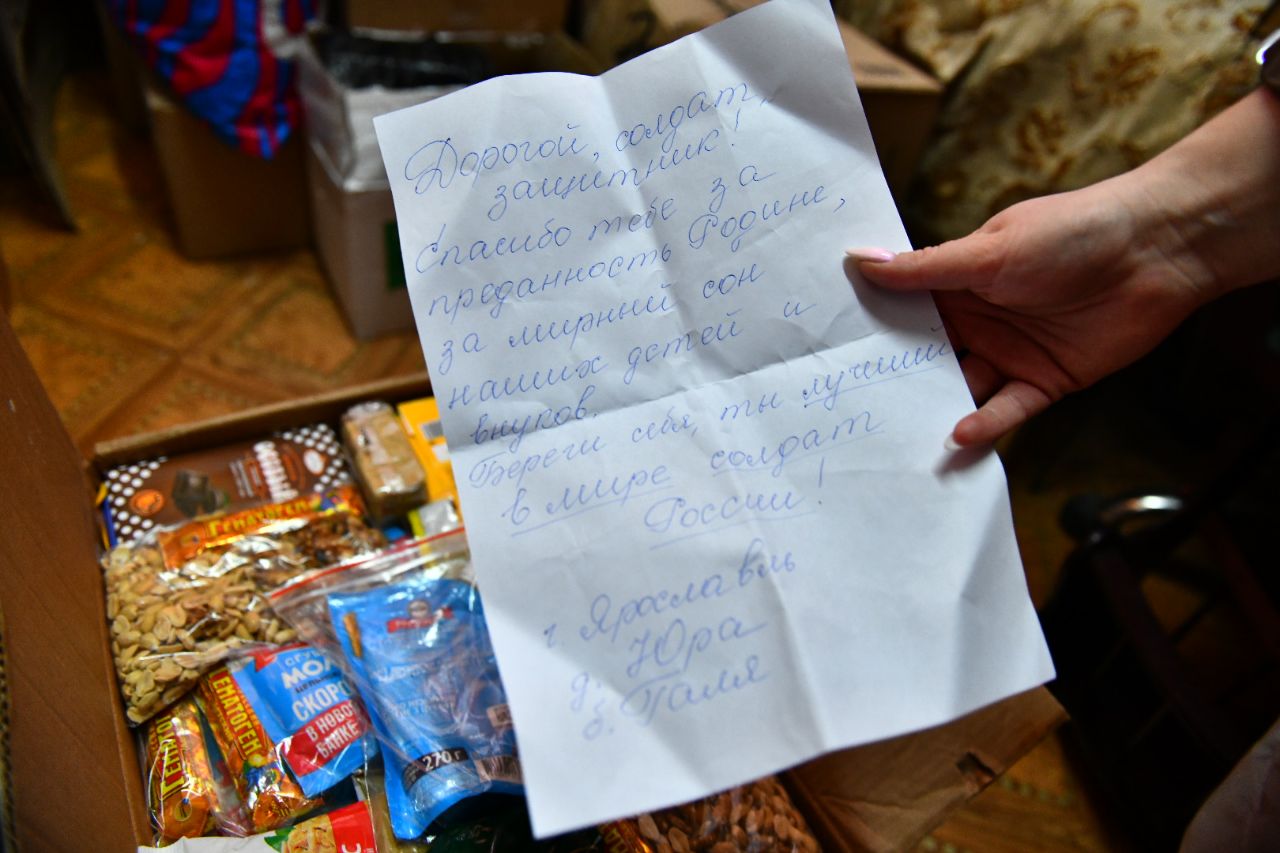 Дорогой, солдат,
защитник!
Спасибо тебе за
преданность Родине,
за мирный сон
наших детей и
внуков.
Береги себя, ты лучший
в мире солдат
России!
г. Ярославль
д. Юра
б. Галя
ГЕМАТОГЕН
ГЕМАТОГЕН
СКОРО
В НОВОЙ
БАНКЕ
270 г